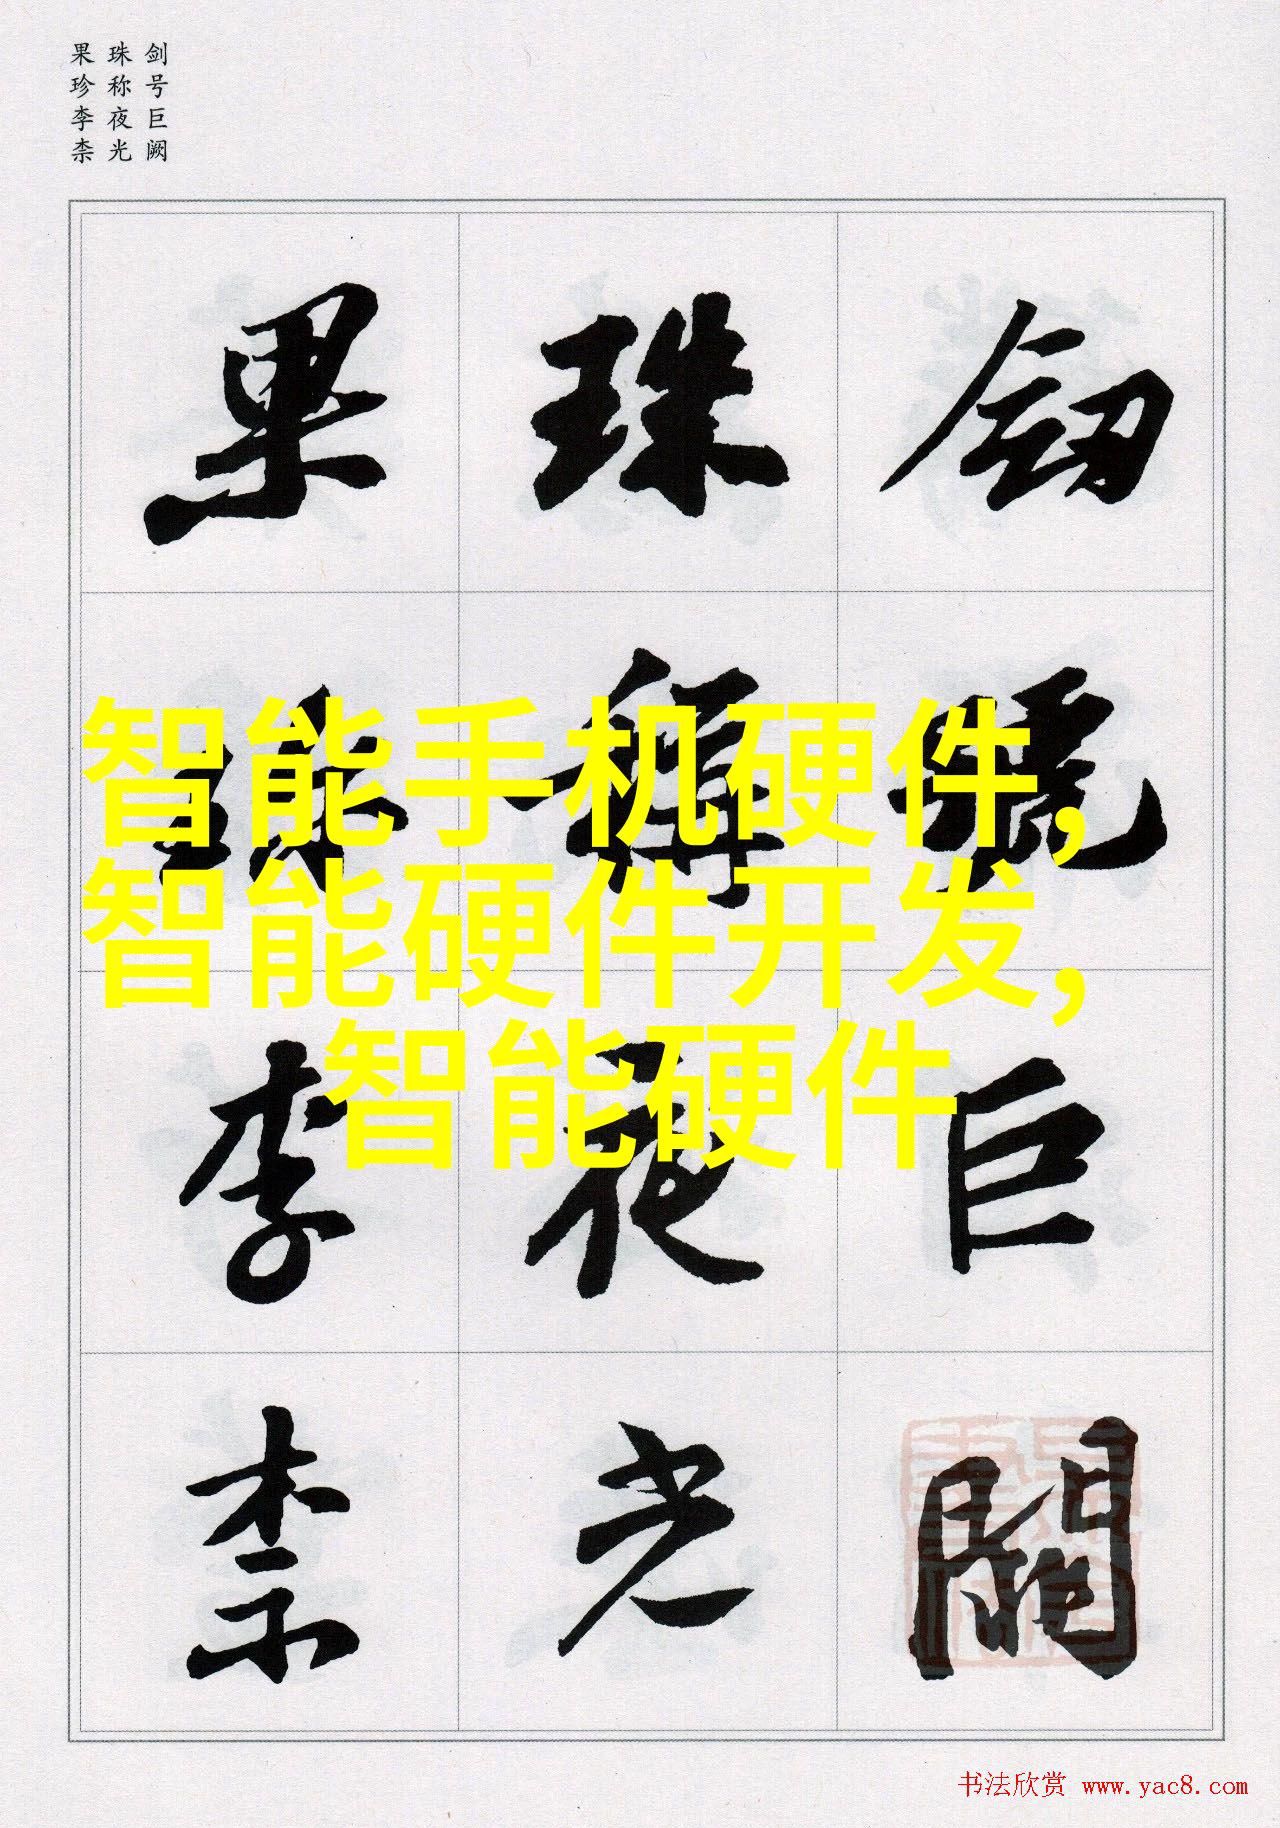 剑号巨阙
珠称夜光
果珍李柰
劒號巨闕
珠稱夜光
果珍李柰
智能手机硬件,
智能硬件开发,
智能硬件
书法欣赏 www.yac8.com